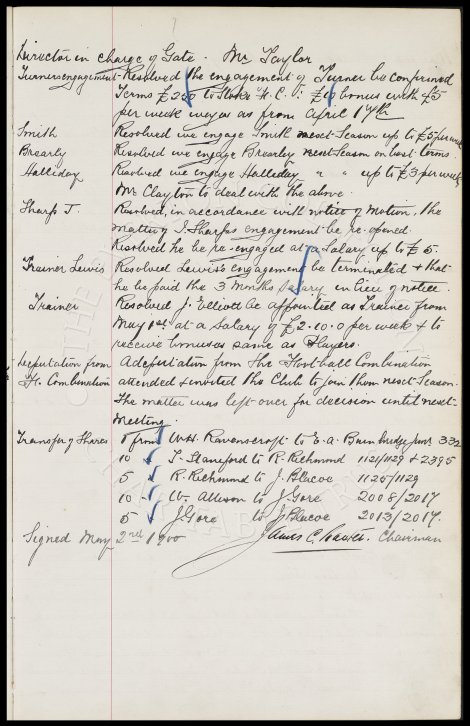 Director in charge of Gate. Mr Taylor
Turners engagement Resolved the engagement of Turner be confirmed
Terms £250 to Stoke F.C. & £10 bonus with £5
per week wages as from April 17th
Smith Resolved we engage Smith next Season up to £5 per week
Brearly Resolved we engage Brearley next Season on best terms
Halliday Resolved we engage Halliday " " up to £3 per week
Mr Clayton to deal with the above.
Sharp J. Resolved, in accordance with notice of Motion, the
matter of J. Sharps engagement be re-opened.
Resolved he be re-engaged at a Salary up to £5.
Trainer Lewis Resolved Lewis's engagement be terminated & that
he be paid the 3 months Salary in lieu of notice.
Trainer Resolved J. Elliott be appointed as Trainer from
May 1st at a Salary of £2.10.0 per week & to
receive bonuses same as Players.
Deputation from A deputation from the Football Combination
F. Combination attended & invited this Club to join them next Season.
The matter was left over for decision until next
Meeting.
Transfer of Shares 5 from W.H. Ravenscroft to E.A. Bainbridge Junr 332
10 " T. Staneford to R. Richmond 1121/1129 & 2395
5 " R. Richmond to J. Blacoe 1125/1129
10 " W. Allison to J Gore 2008/2017
5 " J Gore to J Blacoe 2013/2017.
Signed May 2nd 1900 James C. Chairman